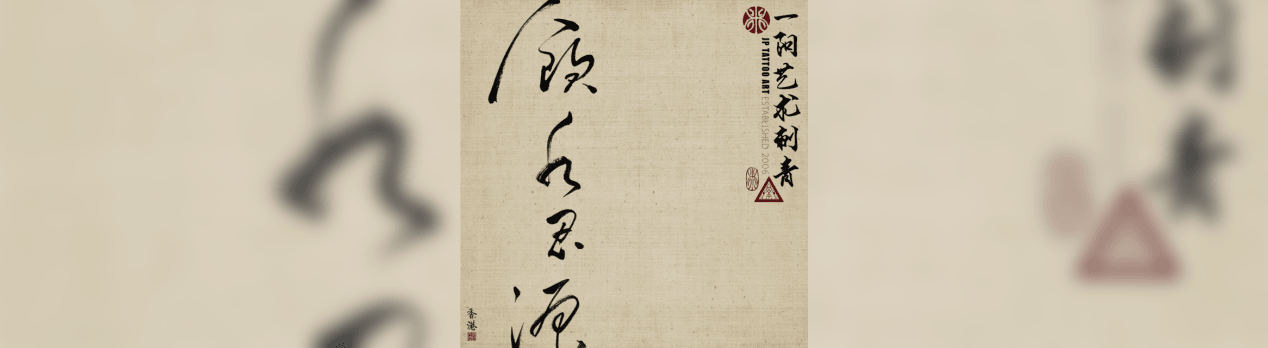 一阳艺术刺青
JP TATTOO ART ESTABLISHED 2006
飲水思源
香港